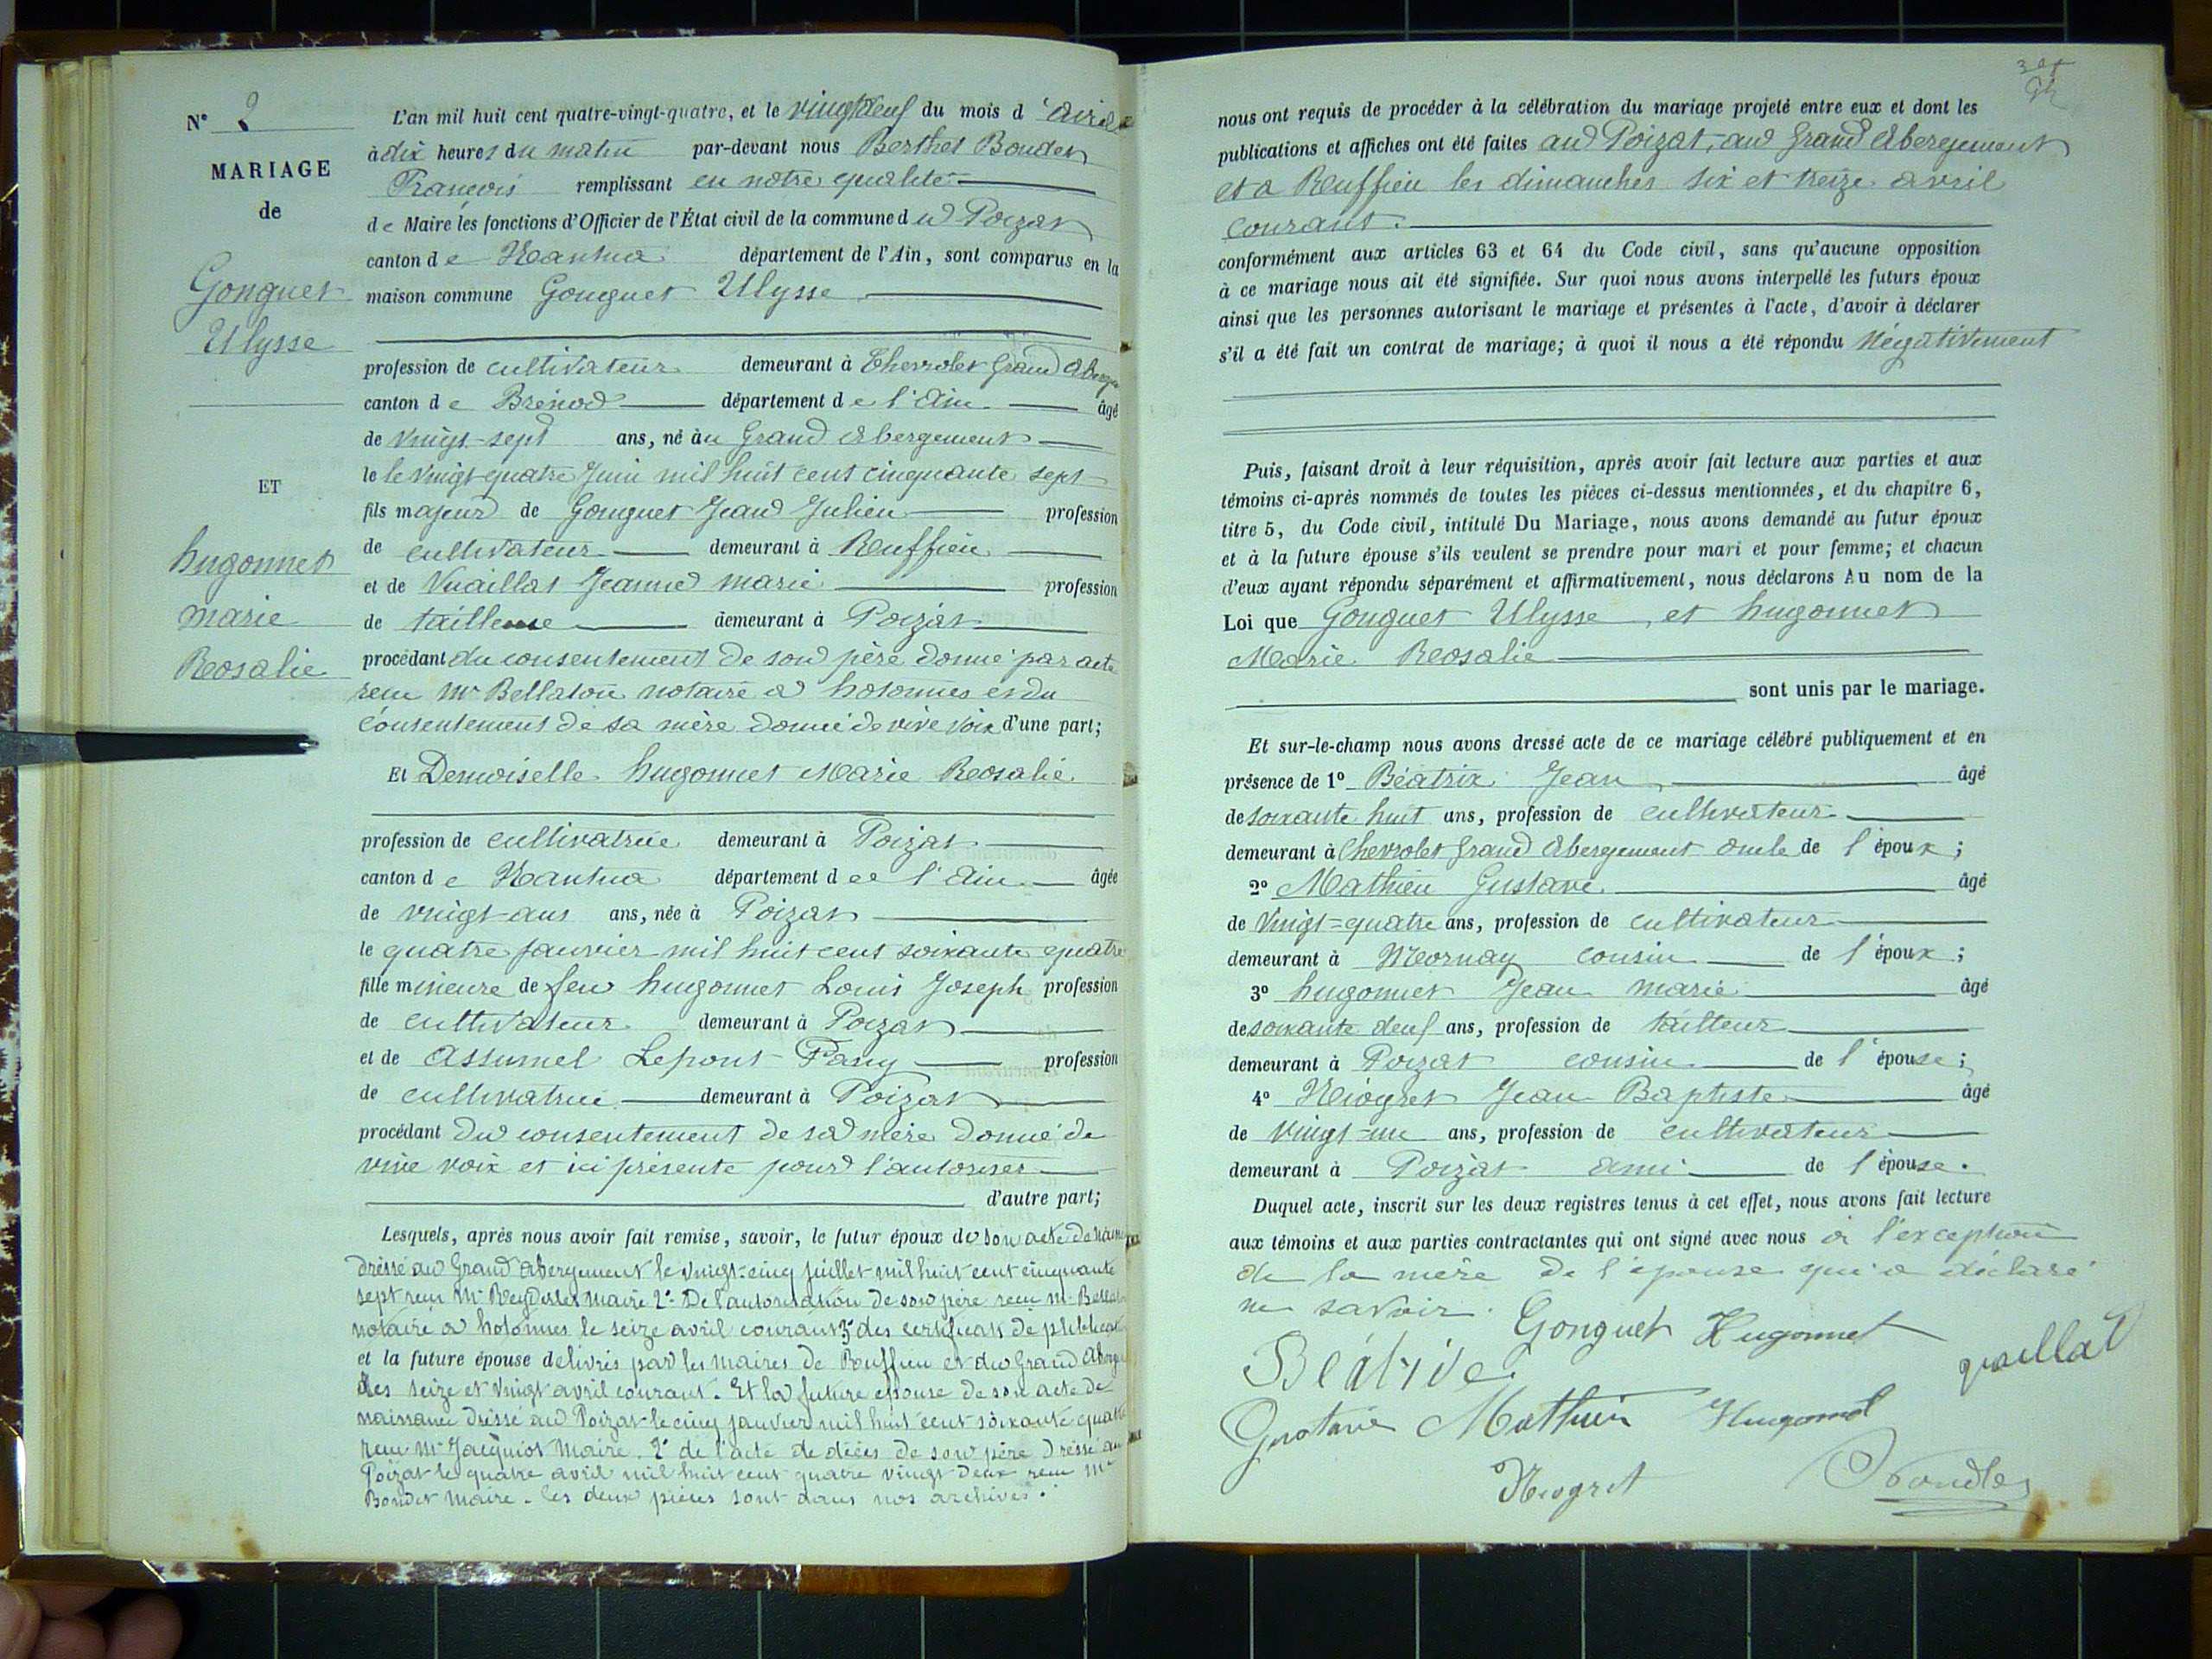 N° 2
MARIAGE
de
Gonguet
Ulysse
ET
hugonnet
marie
Rosalie
L'an mil huit cent quatre-vingt-quatre, et le vingt neuf du mois d'avril
à dix heures du matin par-devant nous Berthet Bondet
François remplissant en notre qualité
de Maire les fonctions d'Officier de l'État civil de la commune du Poizat
canton de Nantua département de l'Ain, sont comparus en la
maison commune Gonguet Ulysse
profession de cultivateur demeurant à Chevrolet Grand Aberge
canton de Brénod département de l'Ain âgé
de vingt-sept ans, né au Grand Abergement
le le vingt-quatre Juin mil huit cent cinquante sept
fils majeur de Gonguet Jean Julien profession
de cultivateur demeurant à Ruffieu
et de Vuaillat Jeanne marie profession
de tailleuse demeurant à Poizat
procédant du consentement de son père donné par acte
reçu Mr Bellaton notaire à hotonnes et du
consentement de sa mère donné de vive voix d'une part;
Et Demoiselle hugonnet Marie Rosalie
profession de cultivatrice demeurant à Poizat
canton de Nantua département de l'Ain âgée
de vingt ans ans, née à Poizat
le quatre janvier mil huit cent soixante quatre
fille mineure de feu hugonnet Louis Joseph profession
de cultivateur demeurant à Poizat
et de Assumel Lepont Fany profession
de cultivatrice demeurant à Poizat
procédant du consentement de sa mère donné de
vive voix et ici présente pour l'autoriser
d'autre part;
Lesquels, après nous avoir fait remise, savoir, le futur époux de son acte de
dressé au Grand abergement le vingt-cinq juillet mil huit cent cinquante
sept reçu Mr maire 2° De l'autorisation de son père reçu Mr
notaire à hotonnes le seize avril courant 3° des certificats de
et la future épouse délivrés par les maires de Ruffieu et du Grand
des seize et vingt avril courant. Et la future épouse de son acte de
naissance dressé au Poizat le cinq janvier mil huit cent soixante quatre
reçu Mr Jacquiot Maire. 2° de l'acte de décès de son père dressé au
Poizat le quatre avril mil huit cent quatre vingt deux reçu Mr
Bondet Maire. les deux pièces sont dans nos archives.
nous ont requis de procéder à la célébration du mariage projeté entre eux et dont les
publications et affiches ont été faites au Poizat, au Grand Abergement
et à Ruffieu les dimanches six et treize avril
courant.
conformément aux articles 63 et 64 du Code civil, sans qu'aucune opposition
à ce mariage nous ait été signifiée. Sur quoi nous avons interpellé les futurs époux
ainsi que les personnes autorisant le mariage et présentes à l'acte, d'avoir à déclarer
s'il a été fait un contrat de mariage; à quoi il nous a été répondu Négativement
Puis, faisant droit à leur réquisition, après avoir fait lecture aux parties et aux
témoins ci-après nommés de toutes les pièces ci-dessus mentionnées, et du chapitre 6,
titre 5, du Code civil, intitulé Du Mariage, nous avons demandé au futur époux
et à la future épouse s'ils veulent se prendre pour mari et pour femme; et chacun
d'eux ayant répondu séparément et affirmativement, nous déclarons Au nom de la
Loi que Gonguet Ulysse et hugonnet
Marie Rosalie
sont unis par le mariage.
Et sur-le-champ nous avons dressé acte de ce mariage célébré publiquement et en
présence de 1° Béatrix Jean âgé
de soixante huit ans, profession de cultivateur
demeurant à Chevrolet Grand Abergement oncle de l'époux;
2° Mathieu Gustave âgé
de Vingt-quatre ans, profession de cultivateur
demeurant à Mornay cousin de l'époux;
3° hugonnet Jean marie âgé
de soixante deuf ans, profession de tailleur
demeurant à Poizat cousin de l'épouse;
4° Niogret Jean Baptiste âgé
de Vingt-un ans, profession de cultivateur
demeurant à Poizat Ami de l'épouse.
Duquel acte, inscrit sur les deux registres tenus à cet effet, nous avons fait lecture
aux témoins et aux parties contractantes qui ont signé avec nous à l'exception
de la mère de l'épouse qui a déclaré
ne savoir. Gonguet Hugonnet
vuillat
Gustave Mathieu
Niogret